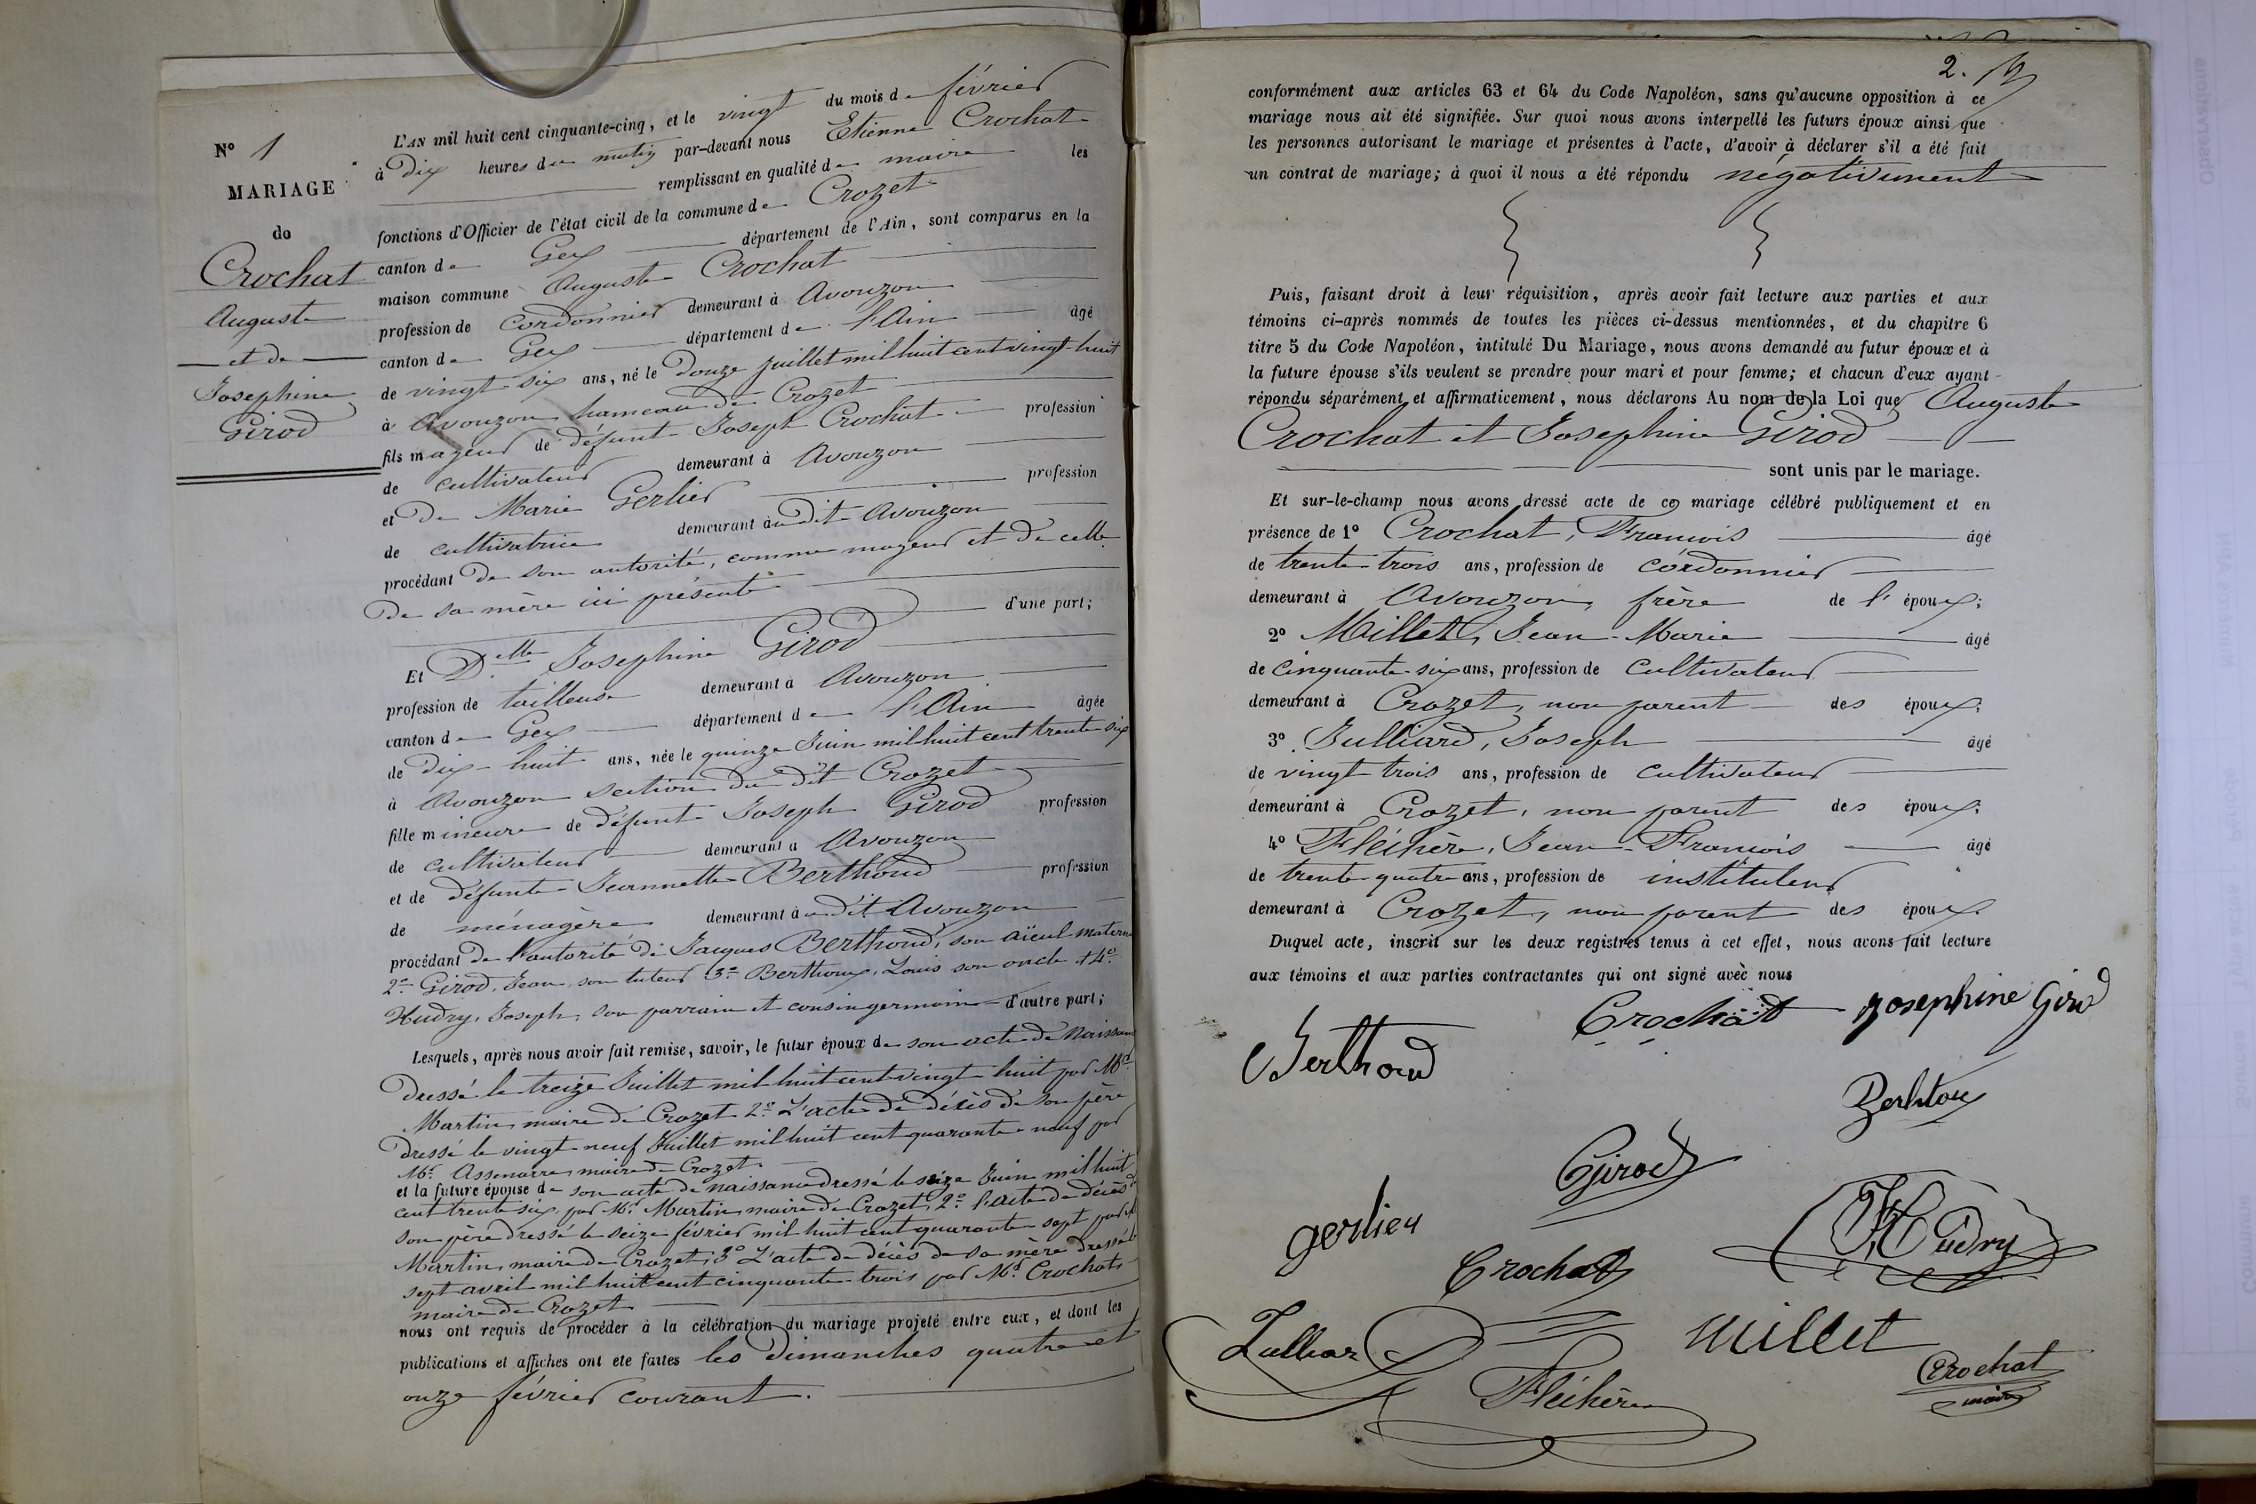 N° 1
MARIAGE
de
Crochat
Auguste
et de
Josephine
Girod
L'AN mil huit cent cinquante-cinq, et le vingt du mois de février
à Dix heures du matin par-devant nous Etienne Crochat
remplissant en qualité de maire les
fonctions d'Officier de l'état civil de la commune de Crozet
canton de Gex département de l'Ain, sont comparus en la
maison commune Auguste Crochat
profession de Cordonnier demeurant à Avouzon
canton de Gex département de l'Ain âgé
de vingt-six ans, né le Douze Juillet mil huit cent vingt-huit
à Avouzon hameau de Crozet
fils majeur de défunt Joseph Crochat profession
de cultivateur demeurant à Avouzon
et De Marie Gerlier profession
de cultivatrice demeurant au dit Avouzon
procédant De son autorité, comme majeur et De celle
De sa mère ici présente d'une part;
Et D.elle Josephine Girod
profession de tailleuse demeurant à Avouzon
canton de Gex département de l'Ain âgée
de Dix-huit ans, née le quinze Juin mil huit cent trente six
à Avouzon section du dit Crozet
fille mineure de défunt Joseph Girod profession
de cultivateur demeurant à Avouzon
et de défunte Jeannette Berthoud profession
de ménagère demeurant au dit Avouzon
procédant De l'autorité De Jacques Berthoud, son aïeul matern
2° Girod, Jean, son tuteur 3° Berthoux, Louis son oncle + 4°
Hudry, Joseph, son parrain et cousin germain d'autre part;
Lesquels, après nous avoir fait remise, savoir, le futur époux de son acte De Naissan
Dressé le treize Juillet mil huit cent vingt-huit par Mr
Martin, maire De Crozet 2° L'acte De Décès De son père
Dressé le vingt-neuf Juillet mil huit cent quarante-neuf par
Mr. maire De Crozet.
et la future épouse de son acte De Naissance dressé le seize Juin mil huit
cent trente six, par Mr Martin, maire de Crozet, 2° l'acte De décès de
son père dressé le seize février mil huit cent quarante-sept par Mr
Martin, maire De Crozet; 3° L'acte De décès De sa mère dressé le
sept avril mil huit cent cinquante-trois par Mr Crochat
maire De Crozet
nous ont requis de procéder à la célébration du mariage projeté entre eux, et dont les
publications et affiches ont été faites les Dimanches quatre et
onze février courant.
2.
conformément aux articles 63 et 64 du Code Napoléon, sans qu'aucune opposition à ce
mariage nous ait été signifiée. Sur quoi nous avons interpellé les futurs époux ainsi que
les personnes autorisant le mariage et présentes à l'acte, d'avoir à déclarer s'il a été fait
un contrat de mariage; à quoi il nous a été répondu négativement
Puis, faisant droit à leur réquisition, après avoir fait lecture aux parties et aux
témoins ci-après nommés de toutes les pièces ci-dessus mentionnées, et du chapitre 6
titre 5 du Code Napoléon, intitulé Du Mariage, nous avons demandé au futur époux et à
la future épouse s'ils veulent se prendre pour mari et pour femme; et chacun d'eux ayant
répondu séparément et affirmativement, nous déclarons Au nom de la Loi que Auguste
Crochat et Josephine Girod
sont unis par le mariage.
Et sur-le-champ nous avons dressé acte de ce mariage célébré publiquement et en
présence de 1° Crochat, François âgé
de trente-trois ans, profession de cordonnier
demeurant à Avouzon, frère de l'époux;
2° Millet, Jean-Marie âgé
de cinquante-six ans, profession de cultivateur
demeurant à Crozet, non parent des époux;
3° Julliard, Joseph âgé
de vingt trois ans, profession de cultivateur
demeurant à Crozet, non parent des époux;
4° Fléchère, Jean-François âgé
de trente-quatre ans, profession de instituteur
demeurant à Crozet, non parent des époux.
Duquel acte, inscrit sur les deux registres tenus à cet effet, nous avons fait lecture
aux témoins et aux parties contractantes qui ont signé avec nous
Crochat Josephine Girod
Berthoud
Berhtoux
Girod
gerlier
Crochat
J Hudry
Julliard
Millet
Fléchère
Crochat
maire